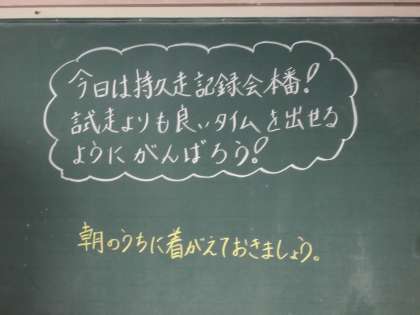 今日は持久走記録会本番!
試走よりも良いタイムを出せる
ようにがんばろう!
朝のうちに着がえておきましょう。